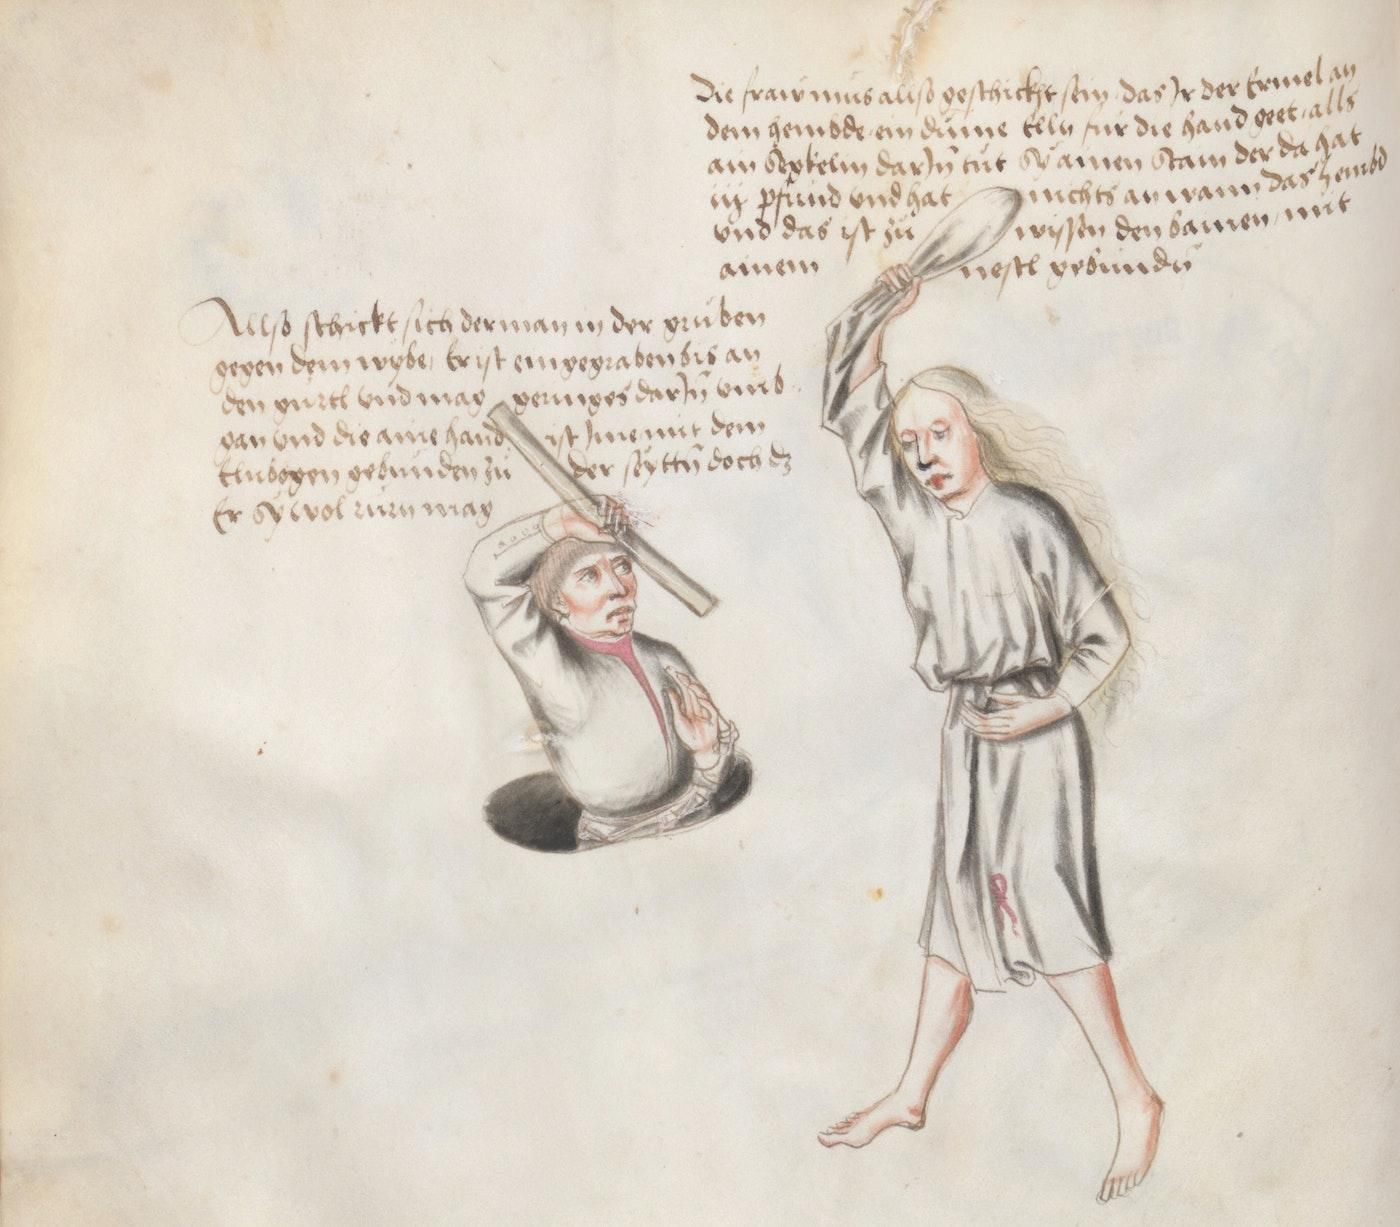 Die fraw mus allso geschickt sein das Ir der Ermel an
dem hembde ein dume Elln für die hand geet alls
ain seckelin darIn tut sy ainen Stain der da hat
iij pfund und hat nichts an wann das hembd
und das ist zu wissen den bainen mit
ainem nestl gebunden
Allso schickt sich der man in der gruben
gegen dem wybe Er ist eingegraben bis an
den gürtl und mag geringes darIn umb
gan und die aine hand ist Ime mit dem
Elnbogen gebunden zu der seyttn doch dz
Er sy wol rürn mag